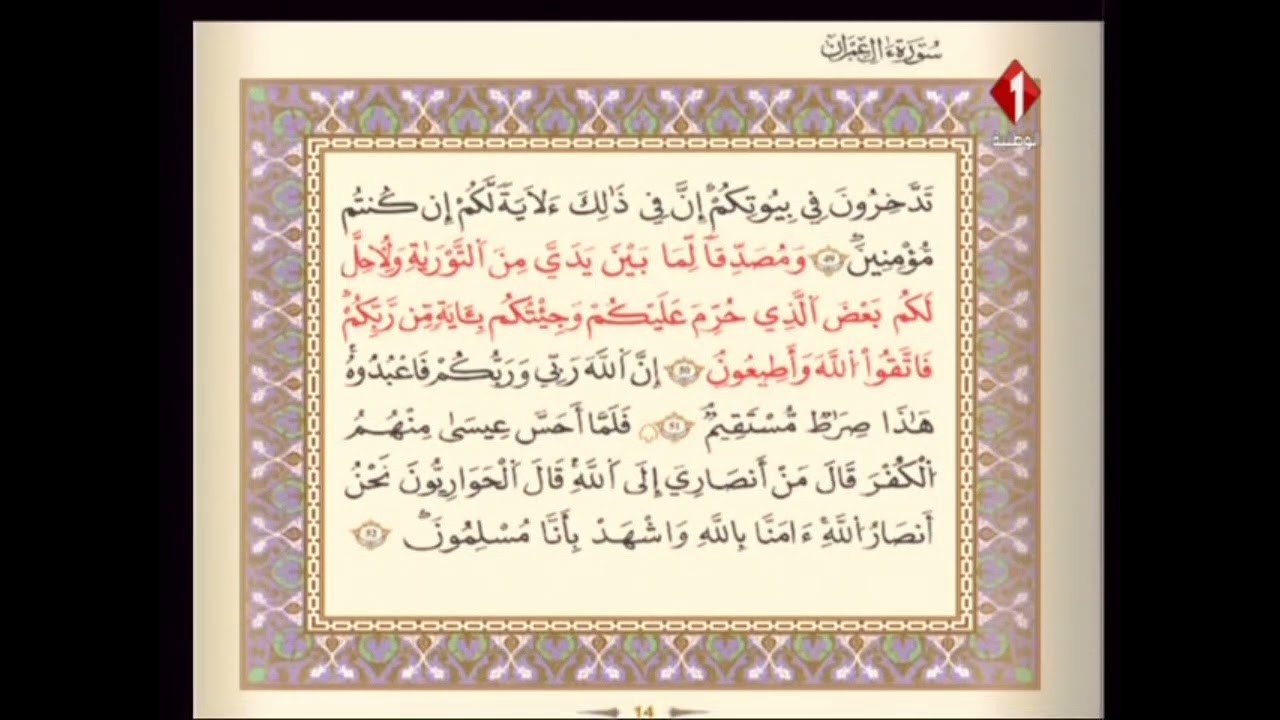 سُورَةُ ءَالِ عِمْرَان
1
الوطنية
تَدَّخِرُونَ فِي بِيُوتِكُمُ إِنَّ فِي ذَٰلِكَ ءَلَايَةٗ لَّكُمُ إِن كُنتُم
مُّؤْمِنِينَۖ 49 وَمُصَدِّقاٗ لِّمَا بَيْنَ يَدَيَّ مِنَ اَلتَّوْرَيٰةِ وَلُأحِلَّ
لَكُم بَعْضَ اَلَّذِي حُرِّمَ عَلَيْكُمْ وَجِئْتُكُم بِـَٔايَةٖ مِّن رَّبِّكُمْۖ
فَاتَّقُواْ اُللَّهَ وَأَطِيعُونِۖ 50 إِنَّ اَللَّهَ رَبِّي وَرَبُّكُمْ فَاعْبُدُوهُۖ
هَٰذَا صِرَٰطٞ مُّسْتَقِيمٞۖ 51 فَلَمَّا أَحَسَّ عِيسَىٰ مِنْهُمُ
اُلْكُفْرَ قَالَ مَنْ أَنصَارِيَ إِلَى اَللَّهِۖ قَالَ اَلْحَوَارِيُّونَ نَحْنُ
أَنصَارُ اُللَّهِۖ ءَامَنَّا بِاللَّهِ وَاشْهَدْ بِأَنَّا مُسْلِمُونَۖ 52
14